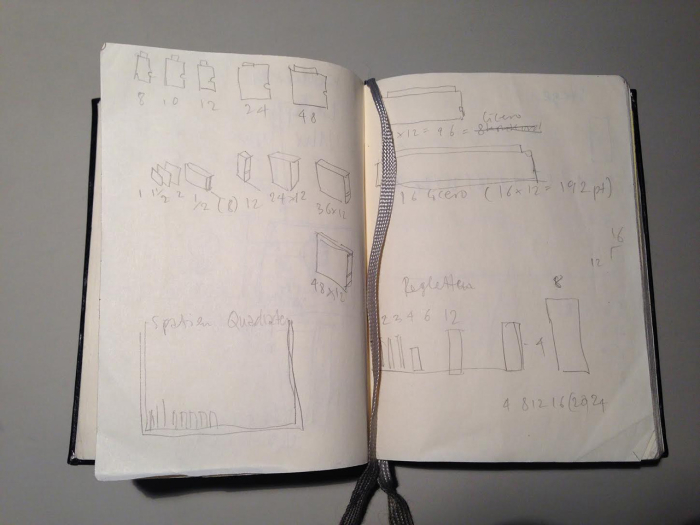 8 10 12 24 48
1 1 1/2 2 1/2 (8) 12 24x12 36x12
48x12
Spatien Quadraten
Cicero
x12 = 96 =
16 Cicero (16 x 12 = 192 pt)
12
Regletten 8
2 3 4 6 12
4
4 8 12 16 (20) 24